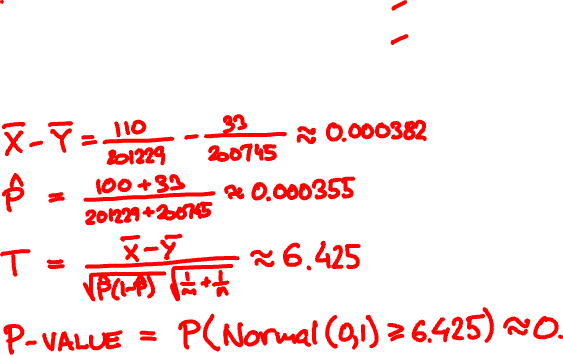 X̄ - Ȳ = 110/201229 - 33/200745 ≈ 0.000382
P̂ = 100+33/201229+200745 ≈ 0.000355
T = X̄-Ȳ/√P̂(1-P̂) √1/m+1/n ≈ 6.425
P-VALUE = P(Normal(0,1) ≥ 6.425) ≈ 0.